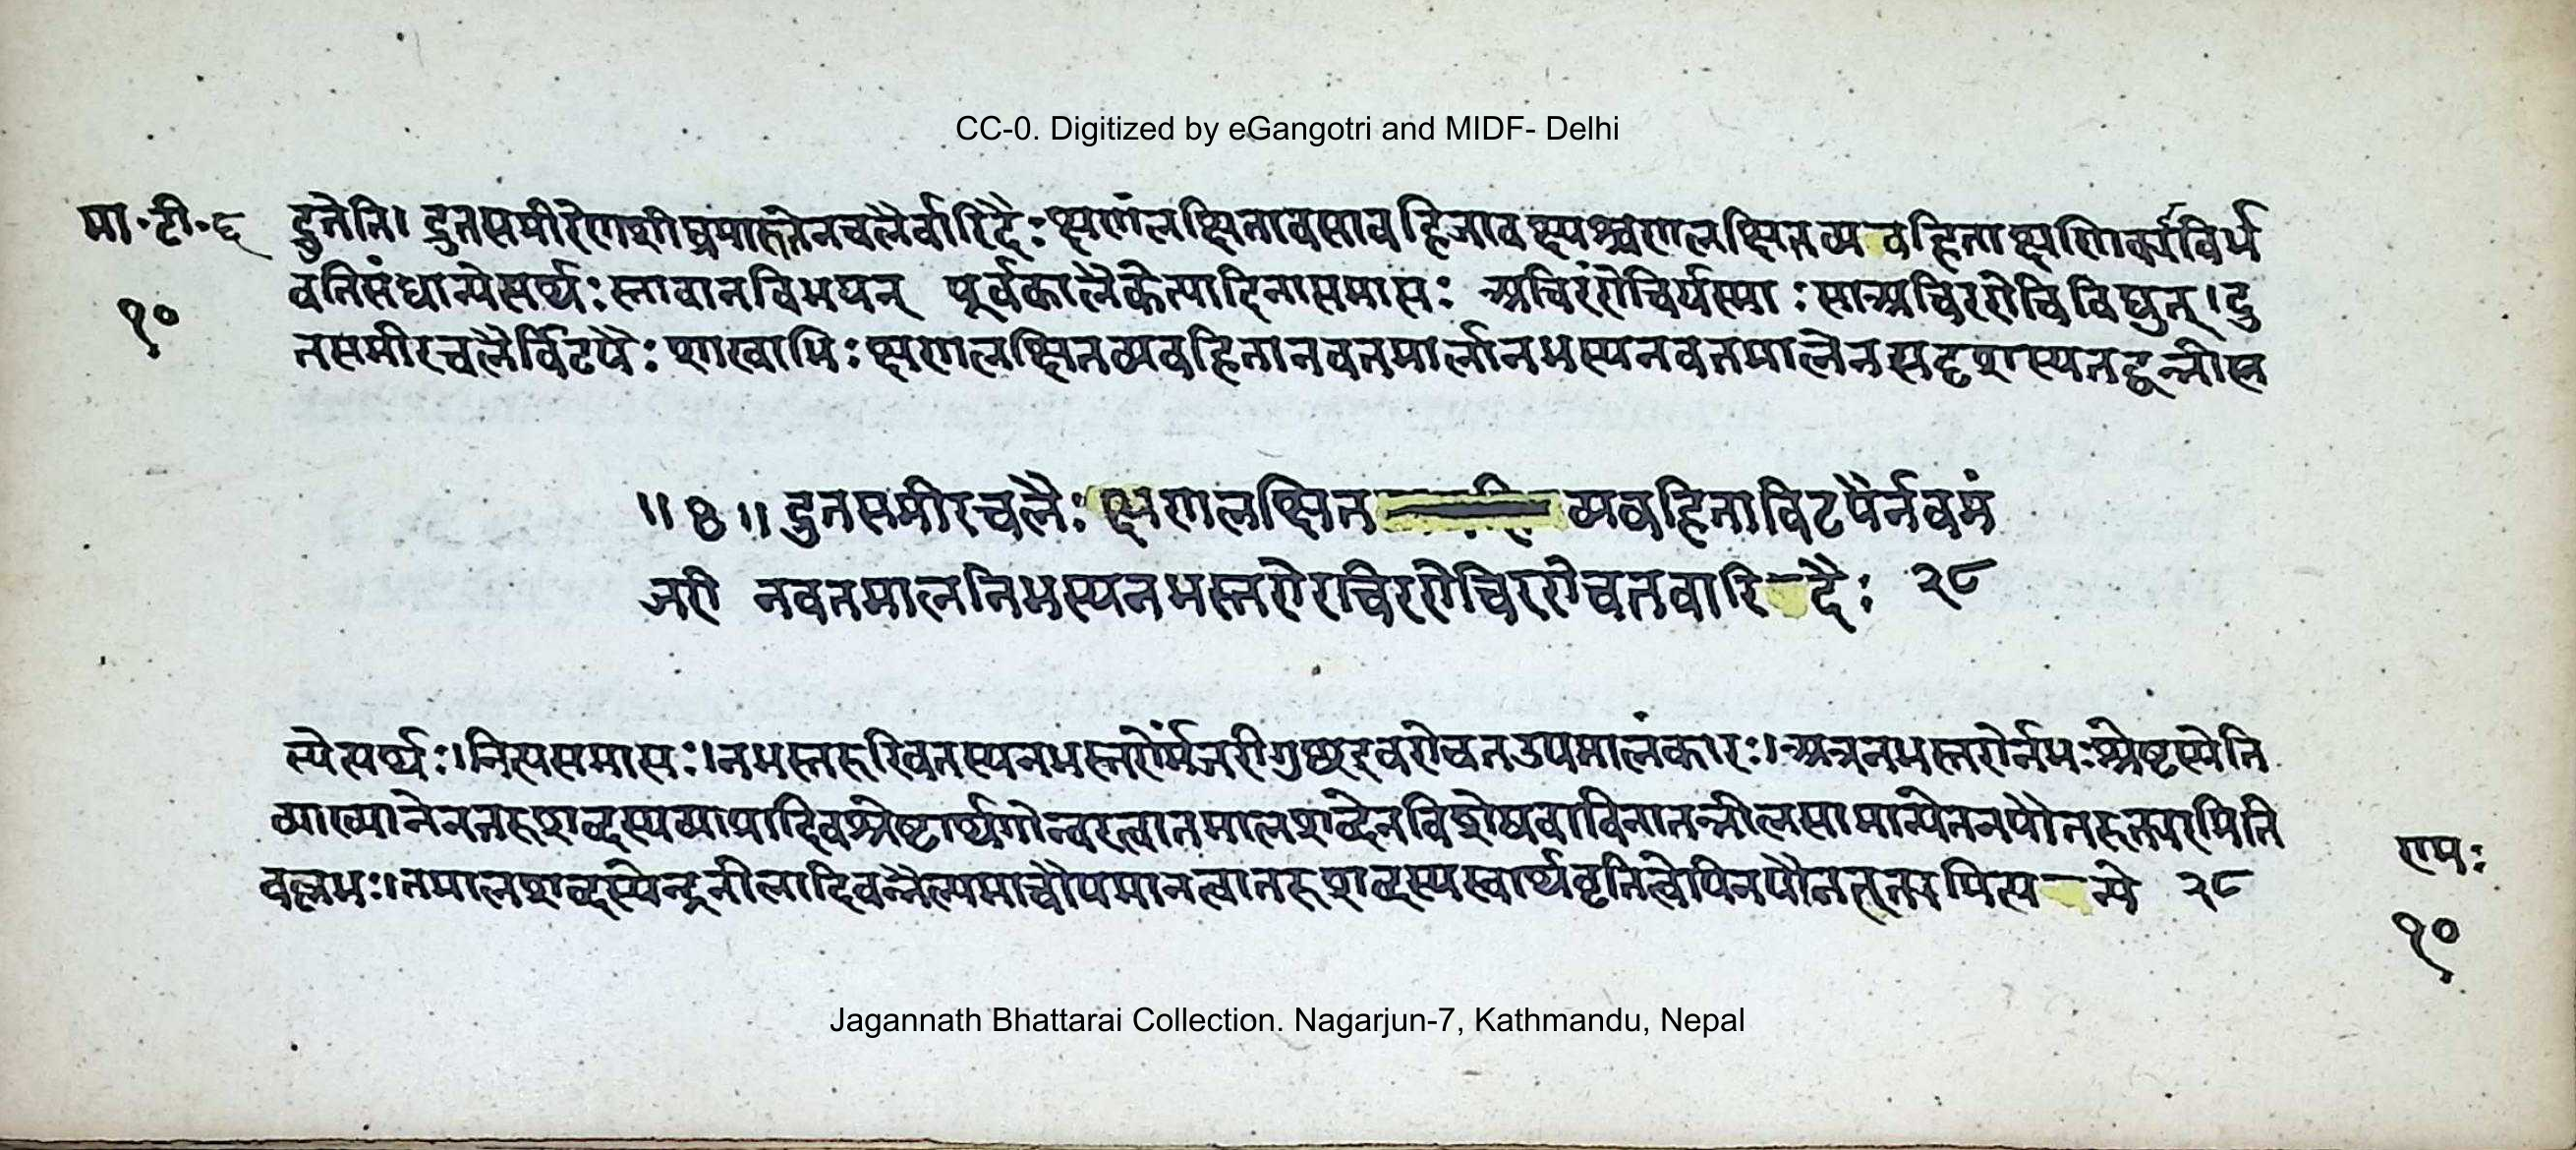 CC-0. Digitized by eGangotri and MIDF- Delhi
मा॰टी॰६ द्रुतेति। द्रुतसमीरेणशीघ्रमारुतेनचलैर्वारिदैः क्षणंलक्षितावसावहिजाव क्षणलक्षितव्यवहिता
वतिसंधान्येत्यर्थः स्नावानविभयन् पूर्वकालैकेत्यादिनासमासः अचिरंरोचिर्यस्याः साअचिररोचिविद्युत्।द्रु
१०
तसमीरचलैर्विटपैः शाखाभिः क्षणलक्षितव्यवहितानवतमालनिभस्यनवतमालेनसदृशस्यतद्वन्नीस्त
॥४॥ द्रुतसमीरचलैः क्षणलक्षित व्यवहिताविटपैर्नवमं
जरी नवतमालनिभस्यनभस्तरोरचिररोचिररोचतवारिदैः २८
त्येत्यर्थः।नित्यसमासः।नभस्तरुरिवतस्यनभस्तरोर्मंजरीगुछइवरोचतउपमालंकारः।अत्रनभस्तरोर्नभःश्रेष्टस्येति
व्याख्यानेनतरुशब्दस्यव्याघ्रादिवश्रेष्टार्थगोचरत्वातमालशब्देनविशेषवाचिनातन्नीलसामान्येननपौनरुक्त्यमिति
वल्लभः।तमालशब्दस्येन्द्रनीलादिवन्नैल्यमात्रौपमानत्वातरुशब्दस्यस्वार्थवृत्तित्वेपिनपौनरुक्त्यमित्यन्ये २८
रामः
१०
Jagannath Bhattarai Collection. Nagarjun-7, Kathmandu, Nepal